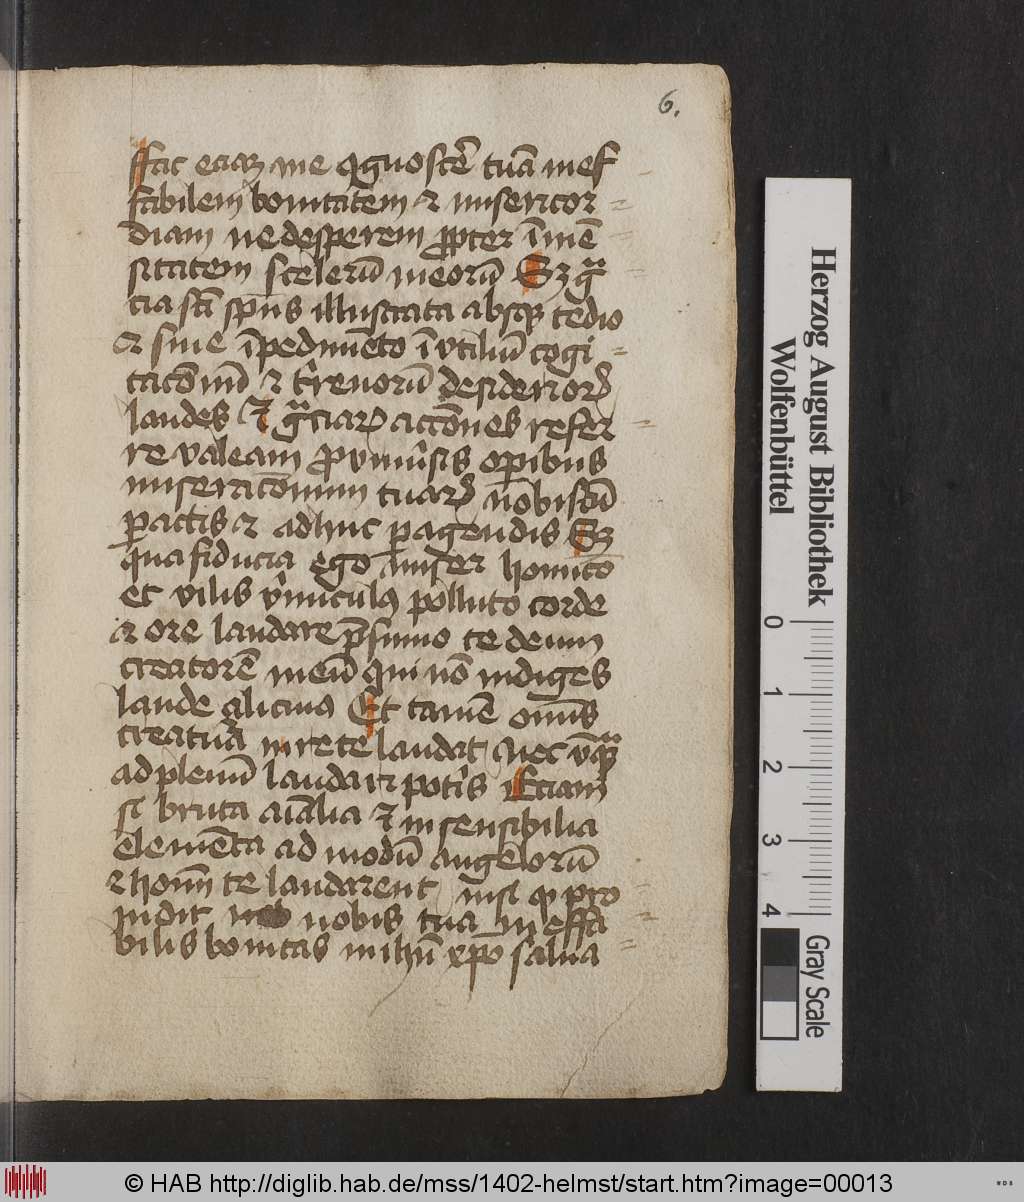 6.
ffac eciam me cognoscē tuā inef
fabilem bonitatem et misericor
diam ne desperem propter īmē
sitatem scelerū meorū Sz gr̄a
cia sctī spūs illustrata absqꝫ tedio
et sine īpedimēto īvtiliū cogi
tacōnū et t̄renorū desideriorꝝ
laudes et gr̄aciarꝝ accōnes refer
re valeam pro vniūsis operibus
miseracōnum tuarꝝ nobiscū
peractis et adhuc peragendis Sz
qua fiducia ego miser homūcō
et vilis v̄miculꝰ polluto corde
et ore laudare p̄sumo te deum
creatorē meū qui nō indiges
laude alicuiꝰ Et tamē om̄is
creatura iure te laudat Nec vn̄qꝫ
ad plenū laudari potis Eciam
si bruta aīalia et insensibilia
elemēta ad modū angelorū
et hoīm te laudarent nisi qꝫ pro
indit nobis tua ineffa
bilis bonitas in ihū xp̄o salua
Herzog August Bibliothek
Wolfenbüttel
0 1 2 3 4
Gray Scale
© HAB http://diglib.hab.de/mss/1402-helmst/start.htm?image=00013